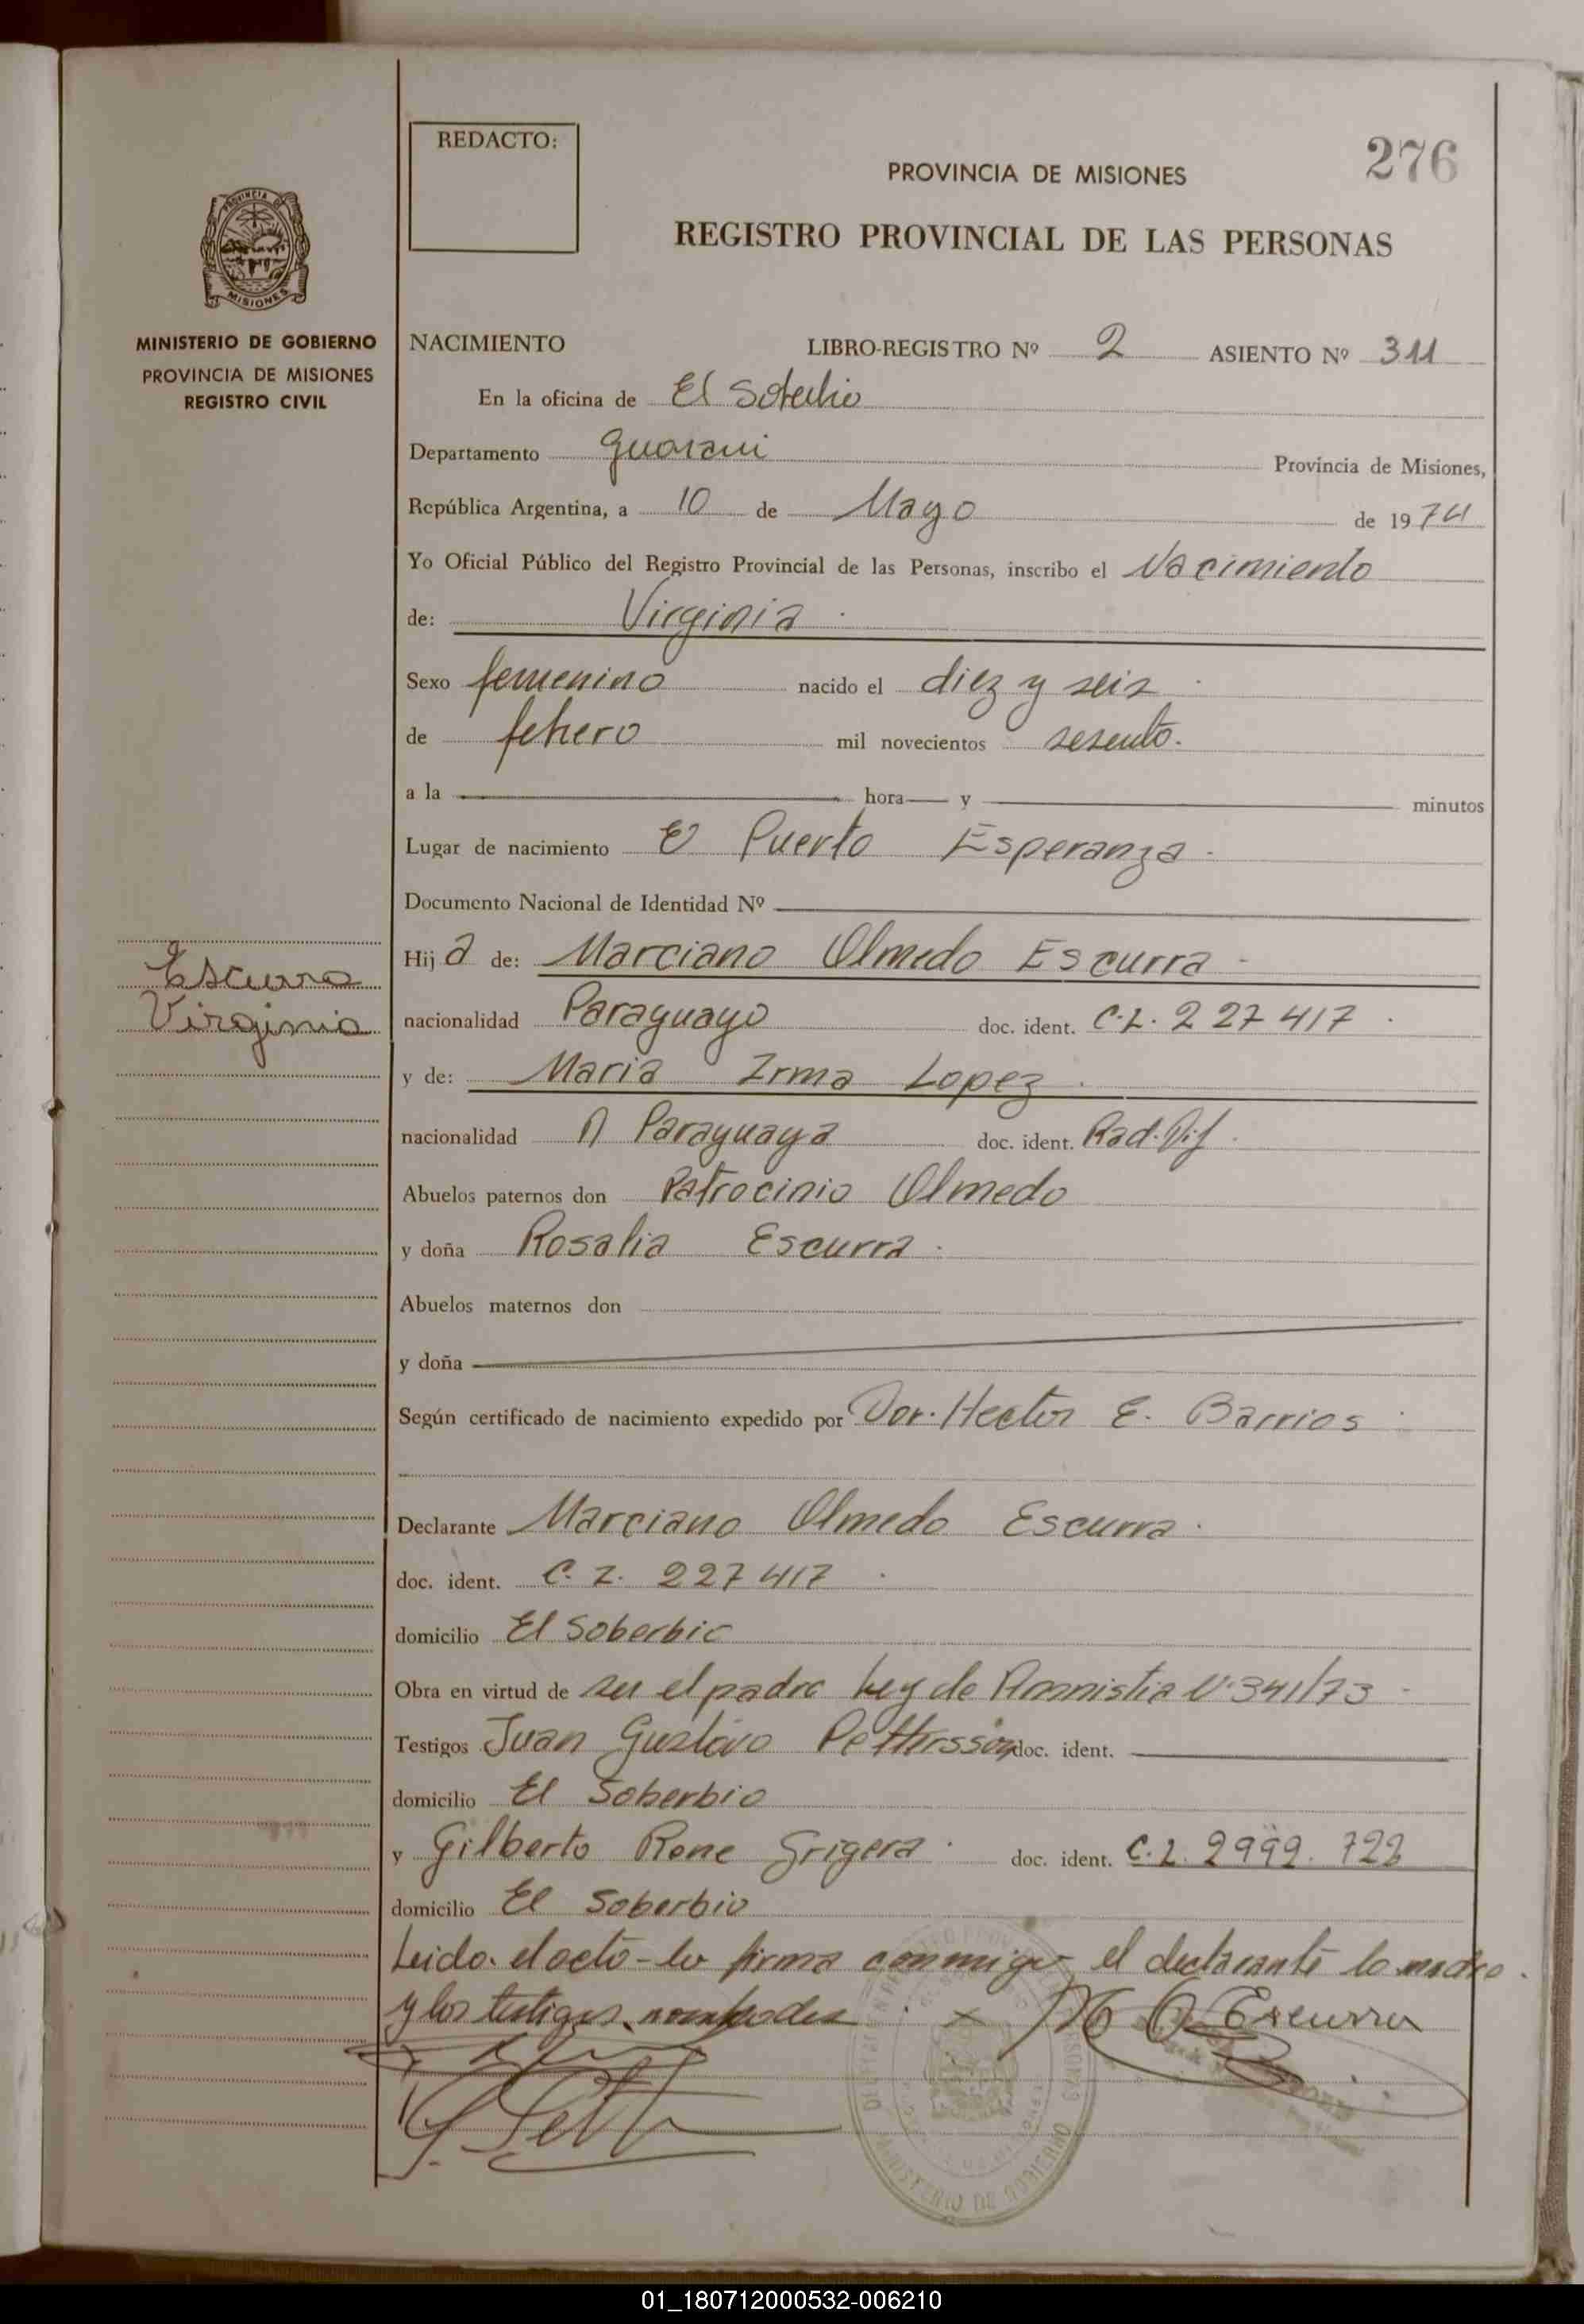 REDACTO:
276
PROVINCIA DE MISIONES
REGISTRO PROVINCIAL DE LAS PERSONAS
PROVINCIA DE
MISIONES
MINISTERIO DE GOBIERNO
PROVINCIA DE MISIONES
REGISTRO CIVIL
NACIMIENTO LIBRO-REGISTRO Nº 2 ASIENTO Nº 311
En la oficina de El Soberbio
Departamento Guarani Provincia de Misiones,
República Argentina, a 10 de Mayo de 1974
Yo Oficial Público del Registro Provincial de las Personas, inscribo el Nacimiento
de: Virginia
Sexo femenino nacido el diez y seis
de febrero mil novecientos sesenta.
a la hora y minutos
Lugar de nacimiento Puerto Esperanza
Documento Nacional de Identidad Nº
Hij a de: Marciano Olmedo Escurra
Escurra
Virginia
nacionalidad Paraguayo doc. ident. C.I. 227417
y de: Maria Irma Lopez
nacionalidad Paraguaya doc. ident. Rad. Dif.
Abuelos paternos don Patrocinio Olmedo
y doña Rosalia Escurra
Abuelos maternos don
y doña
Según certificado de nacimiento expedido por Dor. Hector E. Barrios
Declarante Marciano Olmedo Escurra
doc. ident. C. I. 227417
domicilio El Soberbio
Obra en virtud de ser el padre Ley de Amnistia Nº 341/73
Testigos Juan Gustavo Petterssön doc. ident.
domicilio El Soberbio
y Gilberto Rene Grigera doc. ident. C.I. 2999.722
domicilio El Soberbio
Leida el acta la firma conmigo el declarante la madre
y los testigos nombrados M O Escurra
MINISTERIO DE GOBIERNO
01_180712000532-006210